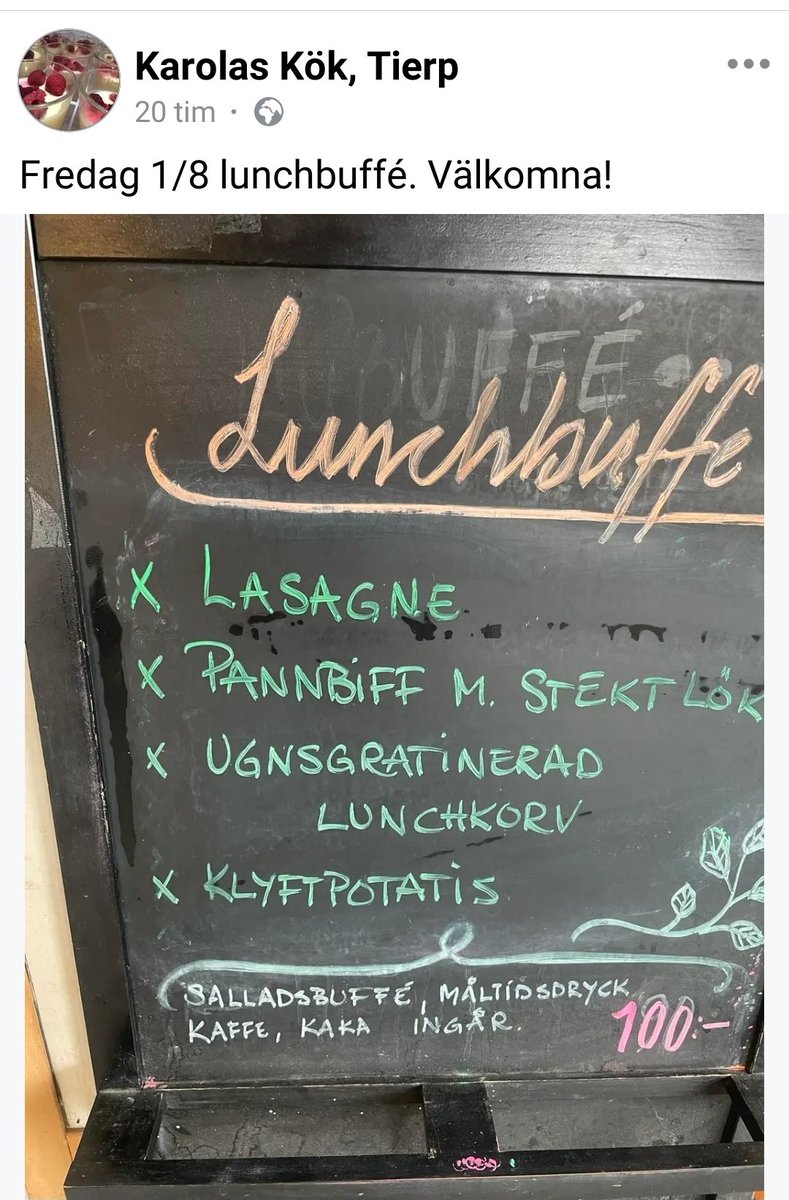 Karolas Kök, Tierp
20 tim
Fredag 1/8 lunchbuffé. Välkomna!
BUFFÉ
Lunchbuffe
X LASAGNE
X PANNBIFF M. STEKT LÖK
X UGNSGRATINERAD
LUNCHKORV
X KLYFTPOTATIS
SALLADSBUFFÉ, MÅLTIDSDRYCK
KAFFE, KAKA INGÅR.
100:-